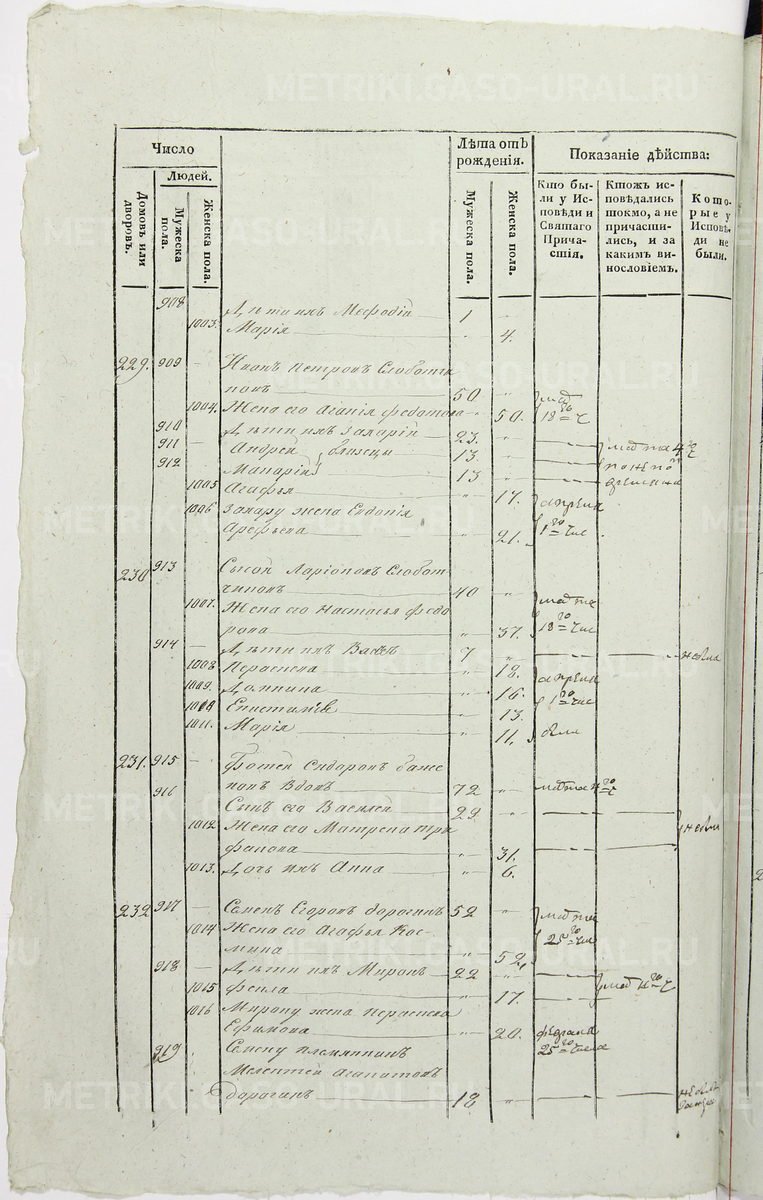 METRIKI.GASO-URAL.RU
Число
Лѣта отъ рожденія.
Показаніе дѣйства:
Людей.
Домовъ или дворовъ.
Мужеска пола.
Женска пола.
Мужеска пола.
Женска пола.
Кто были у Исповѣди и Святаго Причастія.
Ктожъ исповѣдались токмо, а не причастились, и за какимъ винословіемъ.
Которые у Исповѣди не были.
908 Дѣти ихъ Мефодій 1 "
1003. Марія " 4.
229. 909 — Иванъ Петровъ Слоботчи
ковъ 50 "
1004. Жена его Агапія Федотова " 50. 18 го ч
910 Дѣти ихъ Захарий 23. "
911 — Андрей близнцы 13. "
912 Макарий 13 "
1005 Агафья " 17. апреля
1006 Захару жена Евдокія
Арефьева " 21. 1 го чис
230 913 Сысой Ларіоновъ Слобот
чиковъ 40 "
1007. Жена его Настасья Федо
рова " 37. 18 го чис
914 — Дѣти ихъ 7 " небыл
1008 Пераскева " 18. апреля
1009. Домнина " 16. 1 го чис
Епистимія " 13.
1011. Марія " 11. были
231. 915 — Фотей Сидоровъ баже
новъ Вдовъ 72 "
916 Сынъ его Василей 29 "
1012. Жена его Матрена
" 31. небыли
1013. Дочь ихъ Анна " 6.
232 917 Семен Егоровъ дорогинъ 52 "
1014 Жена его Агафья Кос
мина " 52. 25 го чис
918 — Дѣти ихъ Миронъ 22 "
1015 Фекла " 17.
1016 Мирону жена Пераскева
Ефимова " 20.
919 Семену племянникъ 25 го числа
Мелентей Агапитовъ
дорогинъ 18 "